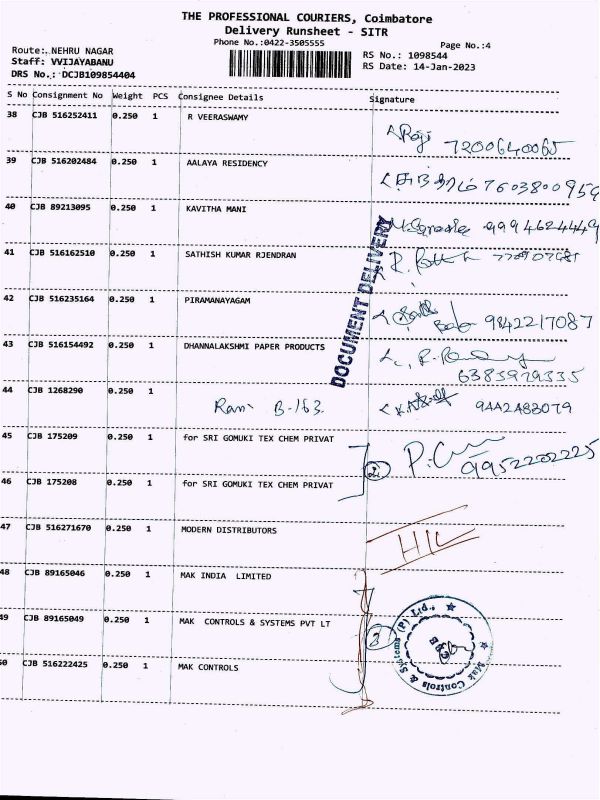 THE PROFESSIONAL COURIERS, Coimbatore
Delivery Runsheet - SITR
Phone No.:0422-3505555
Page No.:4
Route: NEHRU NAGAR
RS No.: 1098544
Staff: VVIJAYABANU
RS Date: 14-Jan-2023
DRS No.: DCJB109854404
S No Consignment No Weight PCS Consignee Details Signature
38 CJB 516252411 0.250 1 R VEERASWAMY
7200640065
39 CJB 516202484 0.250 1 AALAYA RESIDENCY
7603800959
40 CJB 89213095 0.250 1 KAVITHA MANI
9994624449
41 CJB 516162510 0.250 1 SATHISH KUMAR RJENDRAN
42 CJB 516235164 0.250 1 PIRAMANAYAGAM
9842217087
DOCUMENT DELIVERY
43 CJB 516154492 0.250 1 DHANNALAKSHMI PAPER PRODUCTS
6385929335
44 CJB 1268290 0.250 1 Ram B-163 9442483079
45 CJB 175209 0.250 1 for SRI GOMUKI TEX CHEM PRIVAT
2 9952202225
46 CJB 175208 0.250 1 for SRI GOMUKI TEX CHEM PRIVAT
47 CJB 516271670 0.250 1 MODERN DISTRIBUTORS
48 CJB 89165046 0.250 1 MAK INDIA LIMITED
49 CJB 89165049 0.250 1 MAK CONTROLS & SYSTEMS PVT LT
3
Mak Controls & Systems (P) Ltd.,
50 CJB 516222425 0.250 1 MAK CONTROLS